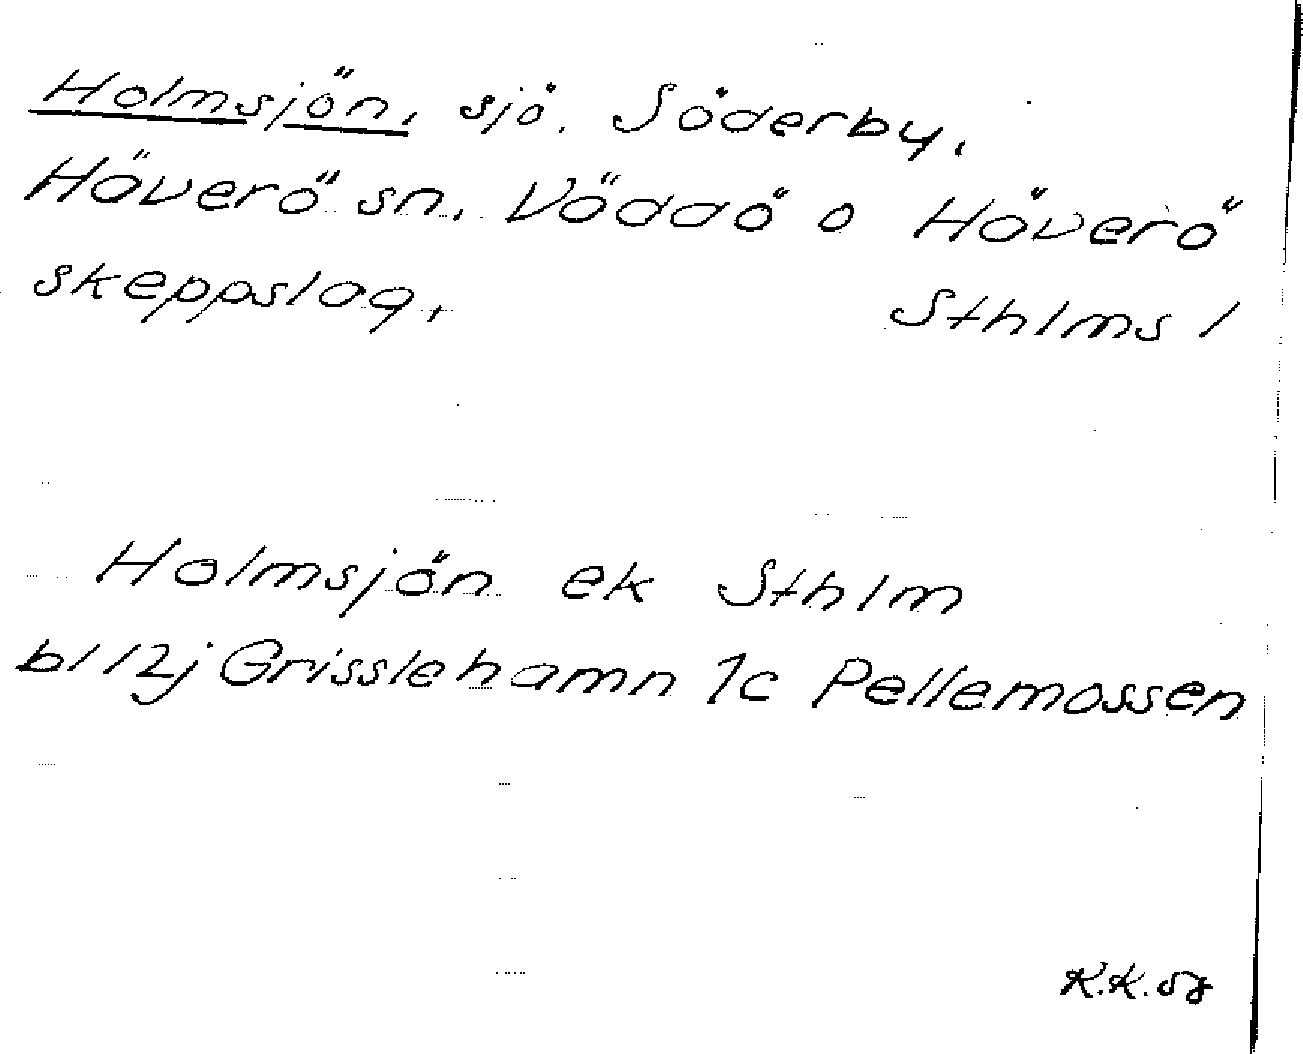 Holmsjön, sjö. Söderby,
Häverö sn. Väddö o Häverö
skeppslag, Sthlms l
Holmsjön ek Sthlm
bl 12j Grisslehamn 1c Pellemossen
K.K.